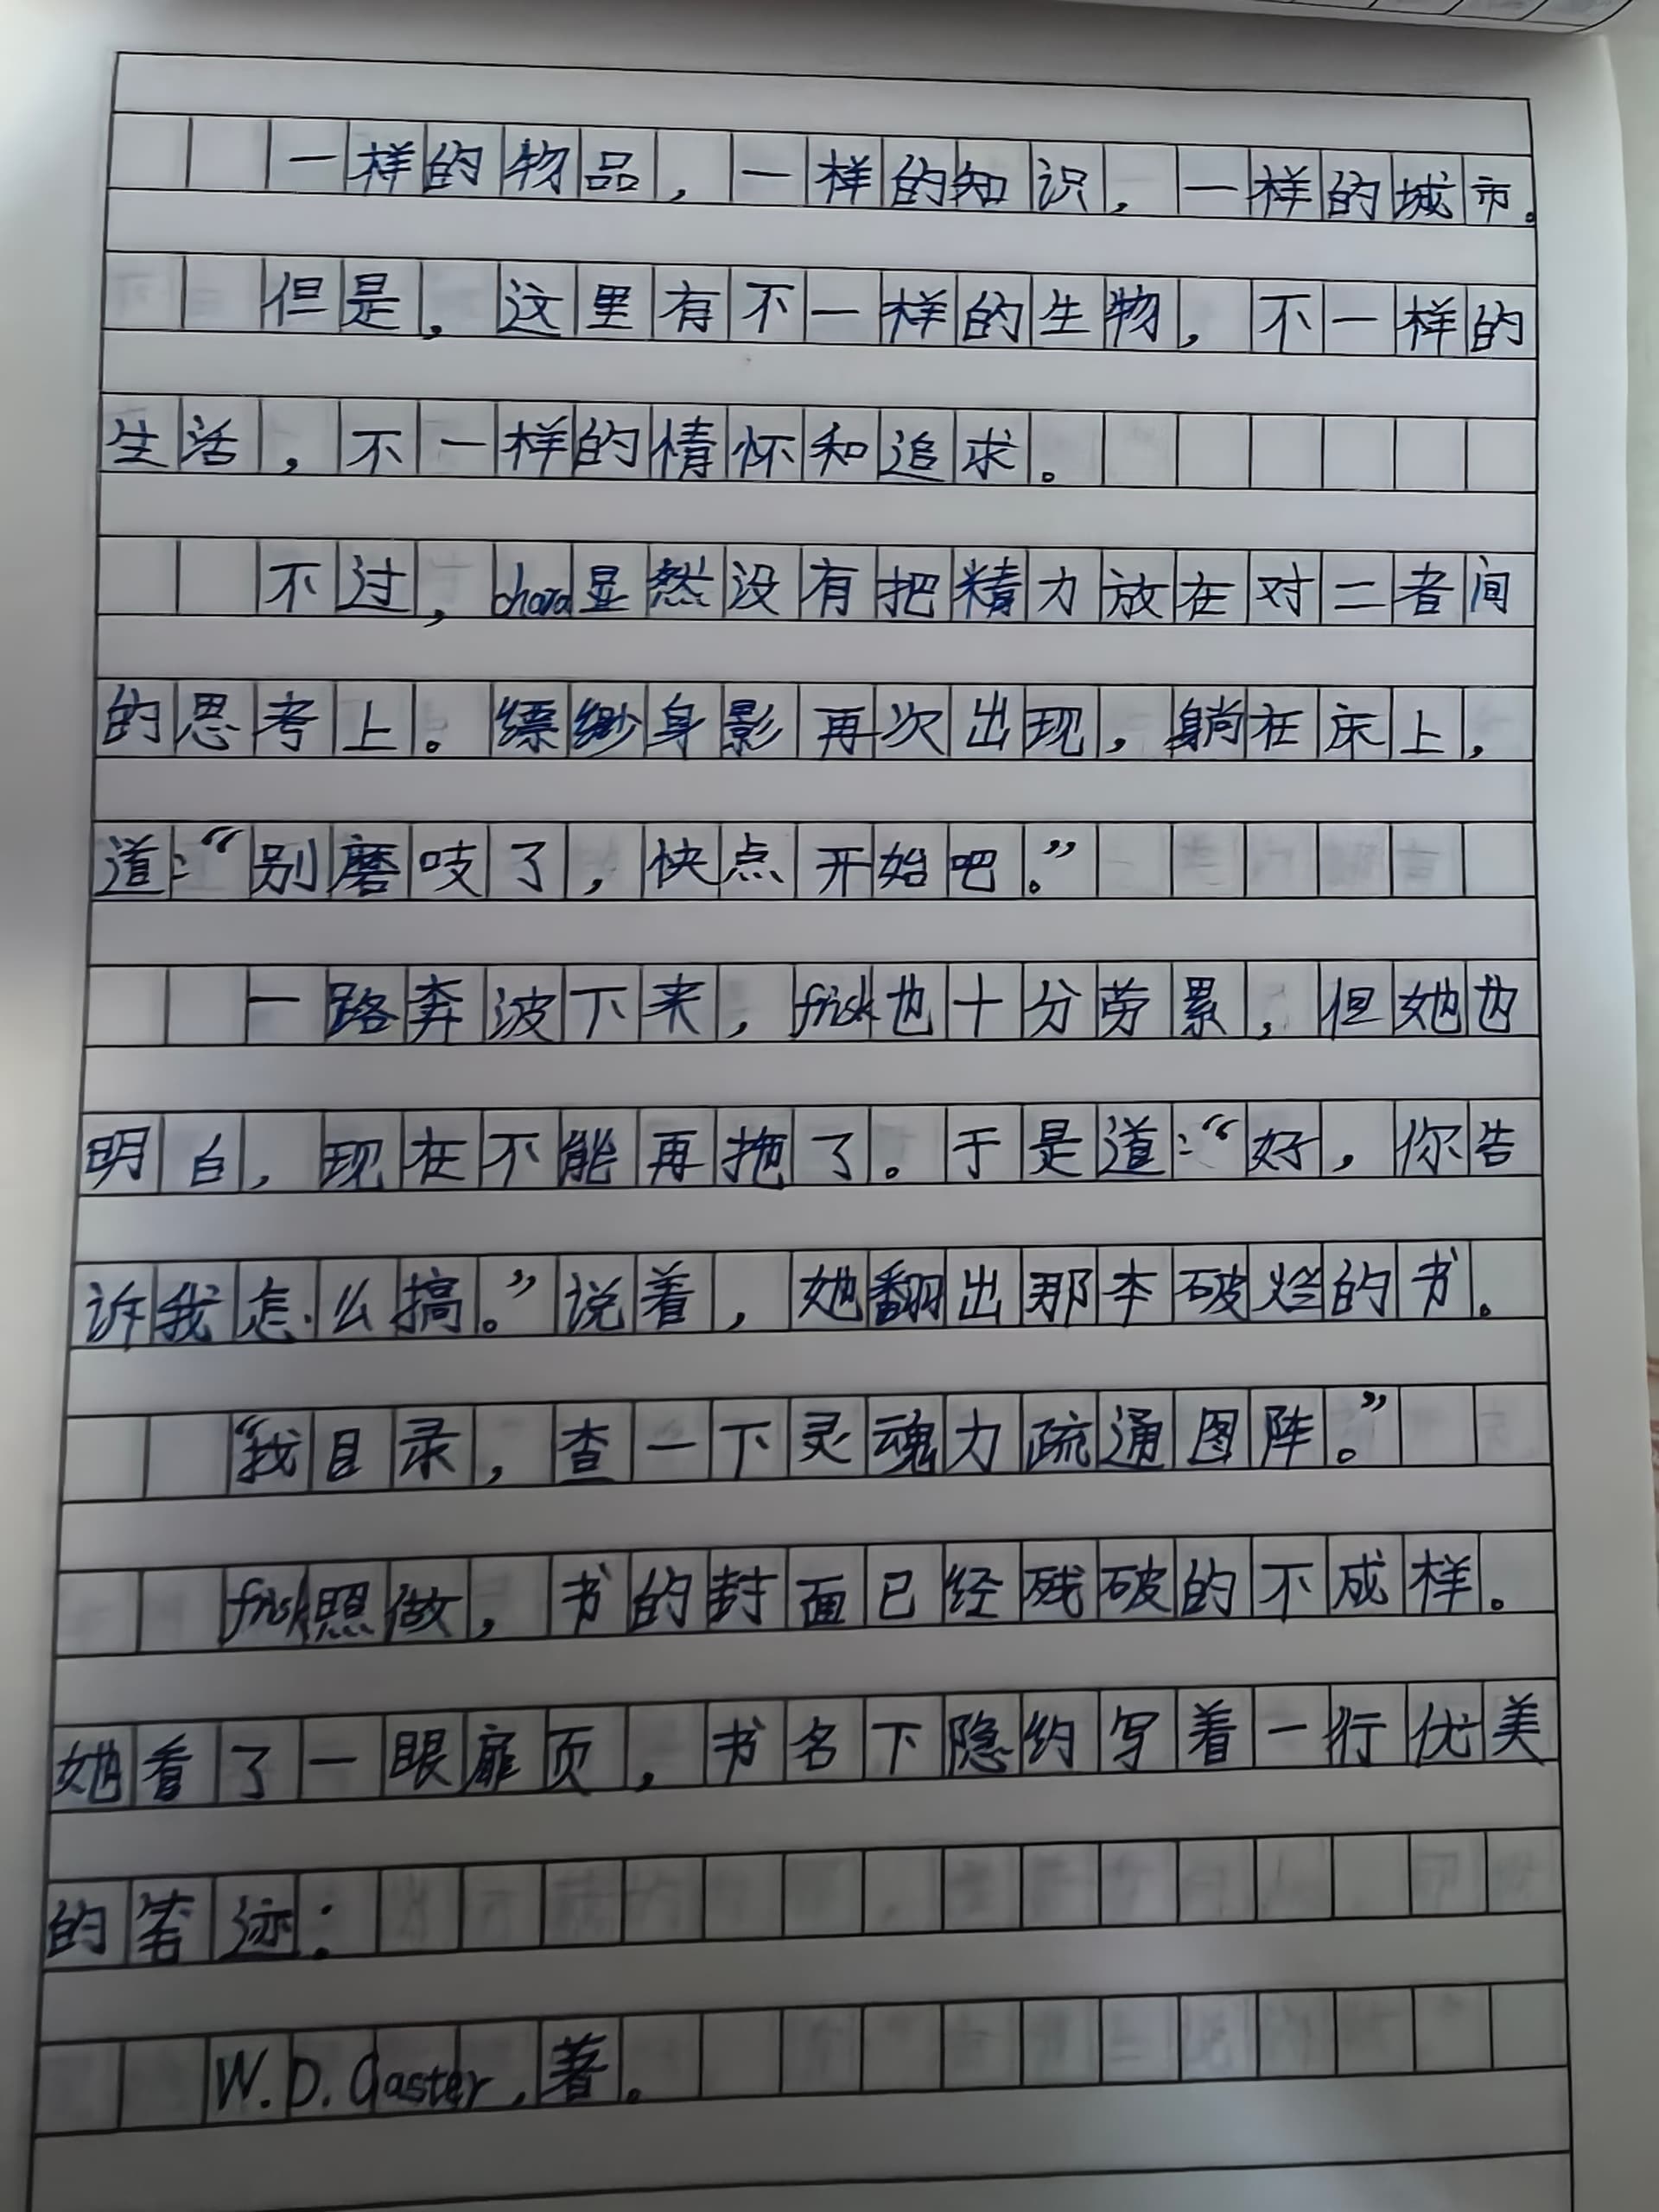 一样的物品，一样的知识，一样的城市。
但是，这里有不一样的生物，不一样的
生活，不一样的情怀和追求。
不过，chara显然没有把精力放在对二者间
的思考上。缥缈身影再次出现，躺在床上，
道：“别磨吱了，快点开始吧。”
一路奔波下来，frisk也十分劳累，但她也
明白，现在不能再拖了。于是道：“好，你告
诉我怎么搞。”说着，她翻出那本破烂的书。
“找目录，查一下灵魂力疏通图阵。”
frisk照做，书的封面已经残破的不成样。
她看了一眼扉页，书名下隐约写着一行优美
的笔迹：
W.D.Gaster，著。